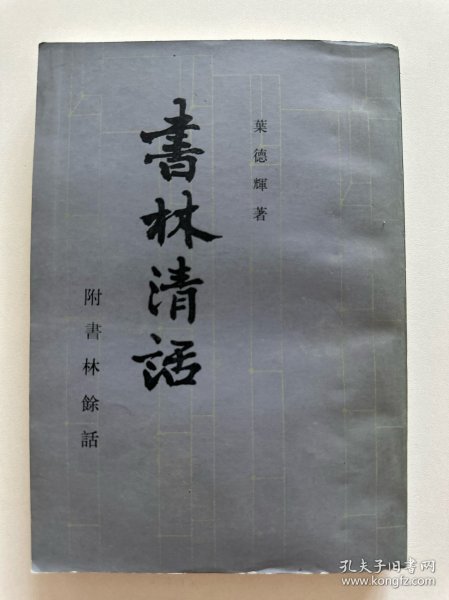 葉德輝著
書林清話
附書林餘話
孔夫子旧书网
www.kongfz.com